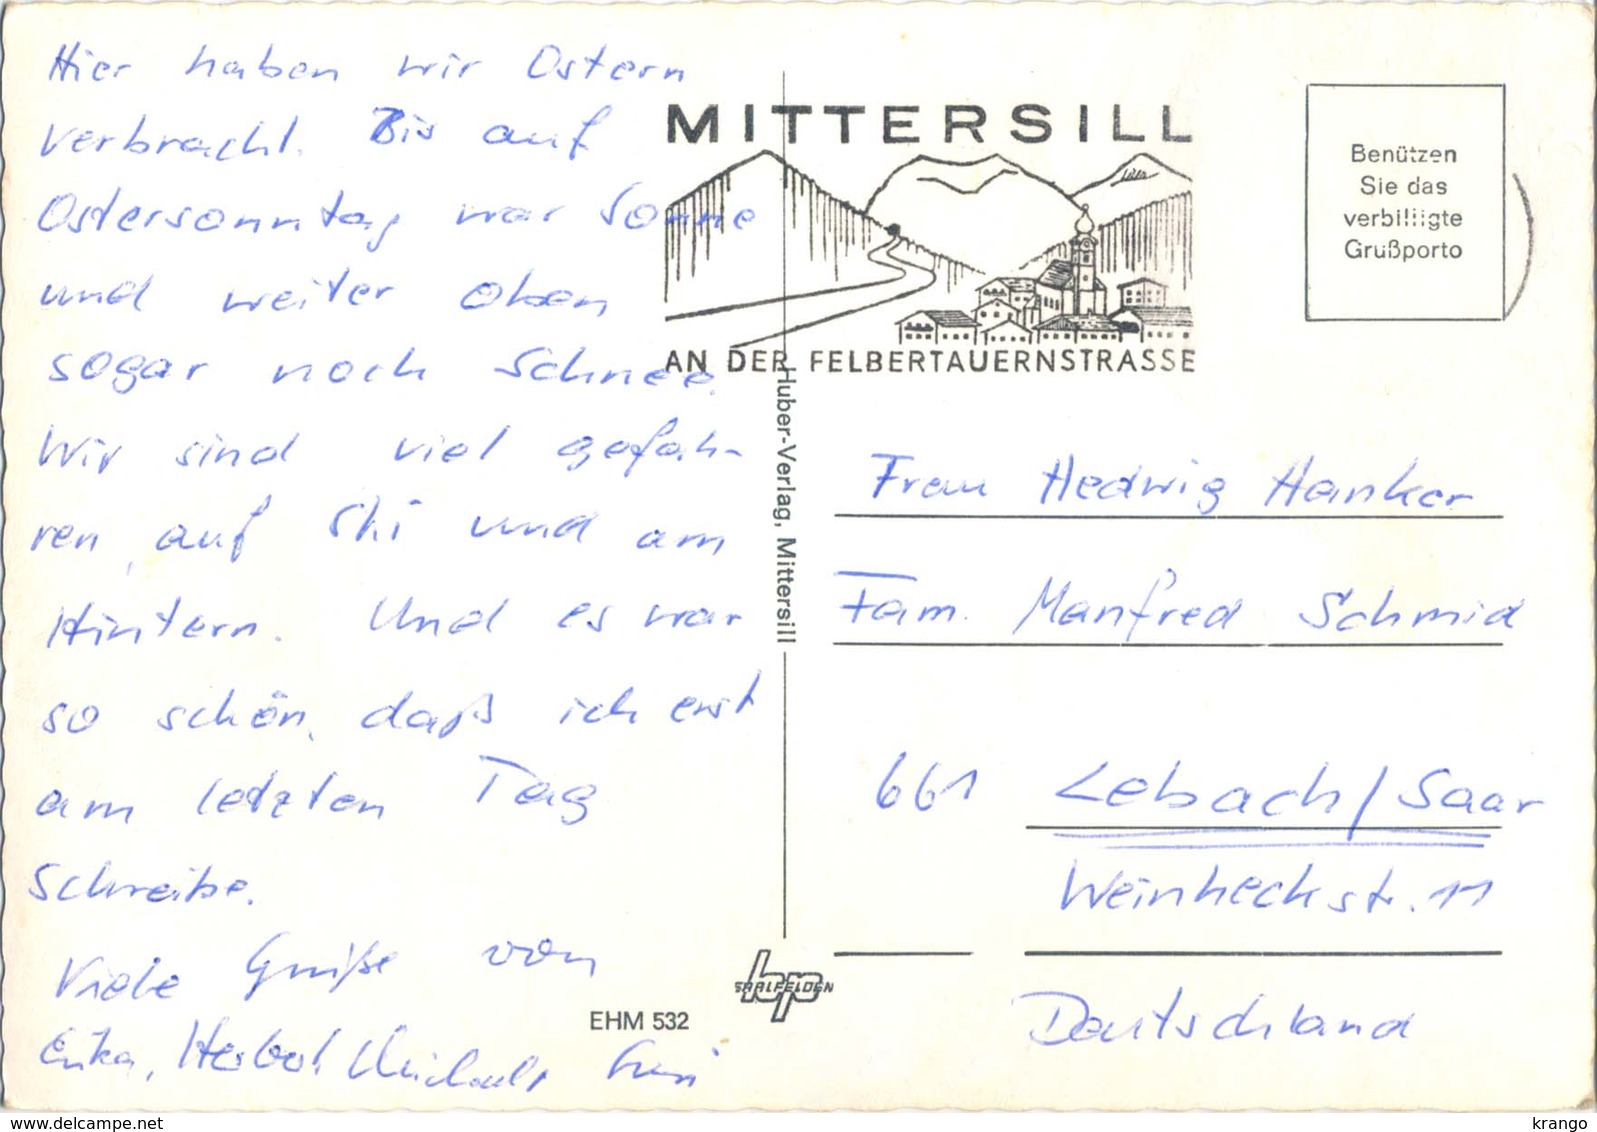 Hier haben wir Ostern
verbracht. Bis auf
Ostersonntag war Sonne
und weiter oben
sogar noch Schnee.
Wir sind viel gefah-
ren, auf Ski und am
Hintern. Und es war
so schön, daß ich erst
am letzten Tag
schreibe.
Viele Grüße von
Erika, Herbert Michael,
MITTERSILL
AN DER FELBERTAUERNSTRASSE
Benützen
Sie das
verbilligte
Grußporto
Huber-Verlag, Mittersill
Frau Hedwig Hanker
Fam. Manfred Schmid
661 Lebach/Saar
Weinheckstr. 11
Deutschland
hp
SAALFELDEN
EHM 532
delcampe.net
krango